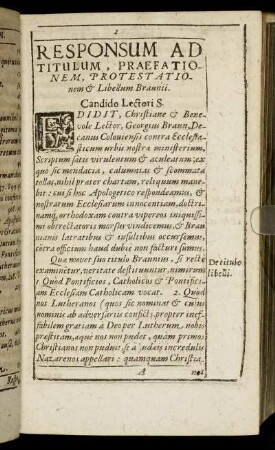 2
RESPONSUM AD
TITULUM, PRAEFATIO-
NEM, PROTESTATIO-
nem & Libellum Braunii.
Candido Lectori S.
EDIDIT, Christiane & Bene-
vole Lector, Georgius Braun, De-
canus Coloniensis contra Ecclesia-
sticum urbis nostræ ministerium,
Scriptum satis virulentum & aculeatum; ex
quo sic mendacia, calumnias & scommata
tollas, nihil præter chartam, reliquum mane-
bit: cui si hoc Apologetico respondeamus, &
nostrarum Ecclesiarum innocentiam, doctri-
namq; orthodoxam contra vipereos iniquissi-
mi obtrectatoris morsus vindicemus, & Brau-
nianis latratibus & insultibus occursemus,
extra officium haud dubie non facturi sumus.
Qua movet suo titulo Braunius, si recte
examinetur, veritate destituuntur, nimirum
1 Quod Pontificios, Catholicos & Pontificiam
Ecclesiam Catholicam vocat. 2. Quod
nos Lutheranos (quos sic nominat & cuius
nominis ab adversariis conficti, propter inef-
fabilem gratiam a Deo per Lutherum, nobis
præstitam, æque nos non pudet, quam primos
Christianos non puduit, se à Judæis incredulis
Nazarenos appellari: quamquam Christia-
De titulo
libelli.
A
nos